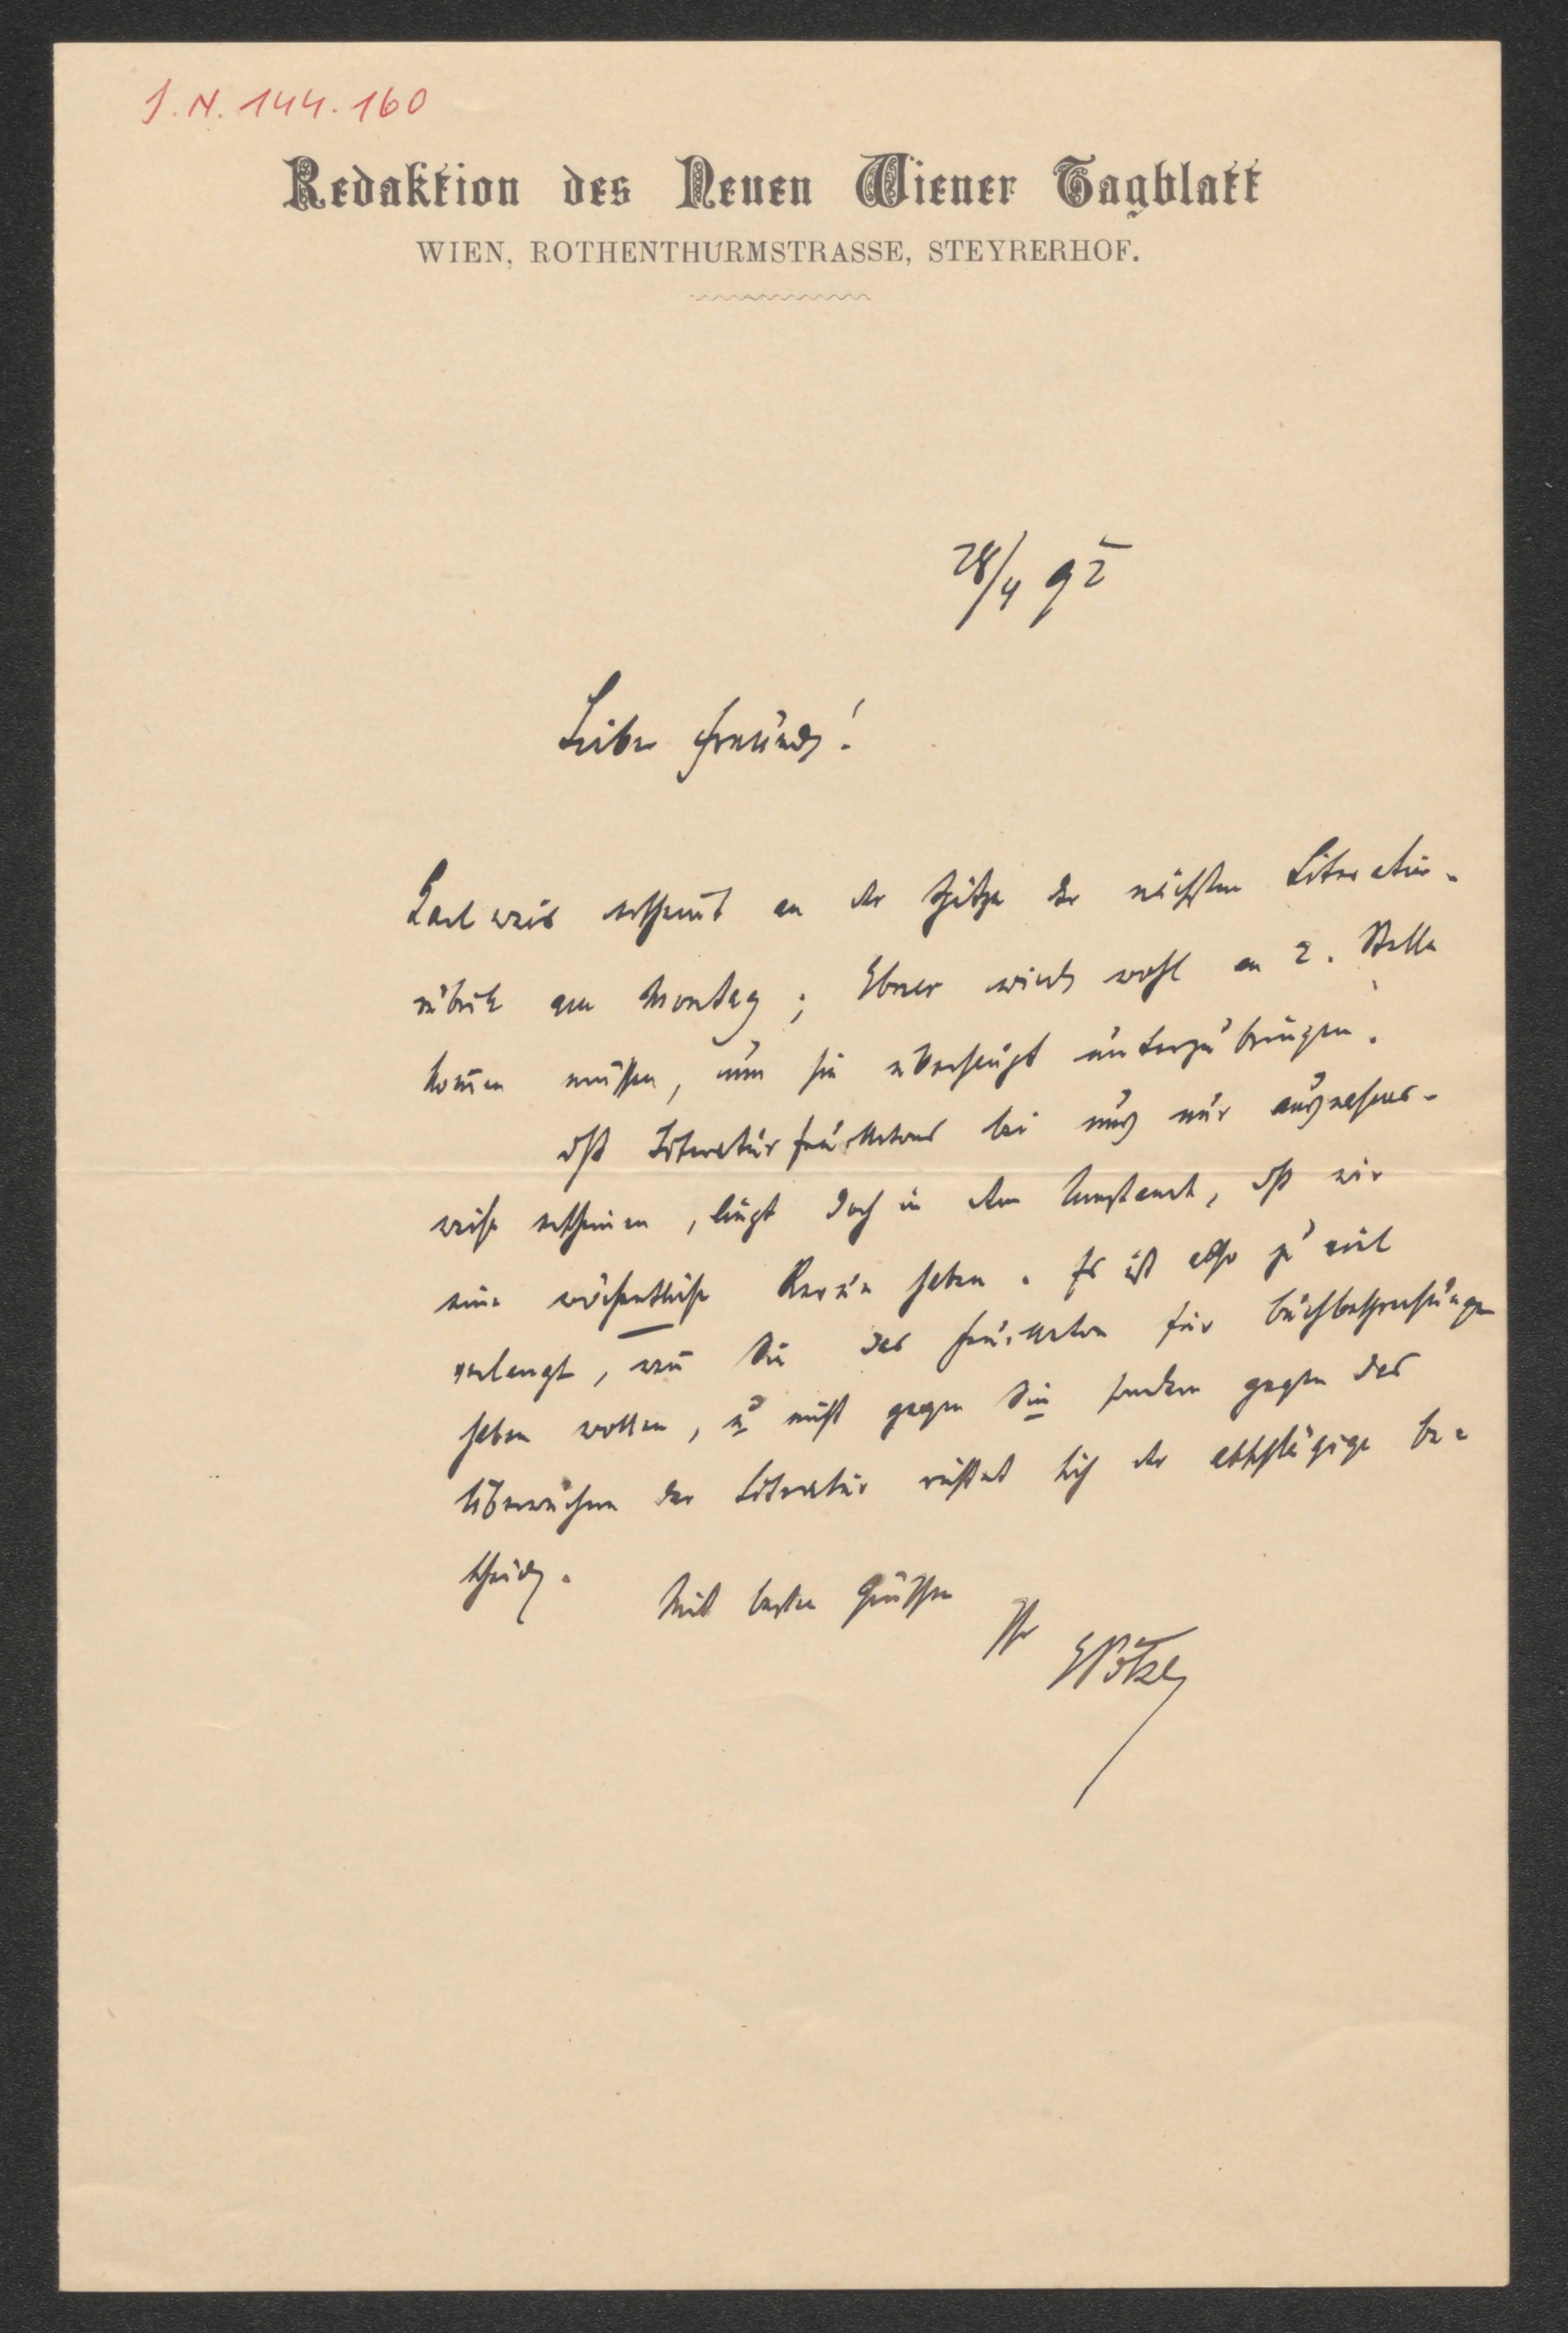 J. N. 144.160
Redaktion des Neuen Wiener Tagblatt
WIEN, ROTHENTHURMSTRASSE, STEYRERHOF.
28/4 95
Lieber Freund!
Karlweis erscheint an der Spitze der nächsten Literatur-
rubrik am Montag; Ebner wird wohl an 2. Stelle
kom̄en müssen, um sie überhaupt unterzubringen.
Daß Literaturfeuilletons bei uns nur ausnahms-
weise erscheinen, liegt doch in dem Umstande, daß wir
eine wöchentliche Revue haben. Es ist also zu viel
verlangt, wen̄ Sie das Feuilleton für Buchbesprechungen
haben wollen, u nicht gegen Sie sondern gegen das
Überwuchern der Literatur richtet sich der abschlägige Be-
scheid.
Mit besten Grüßen
Ihr
EPötzl